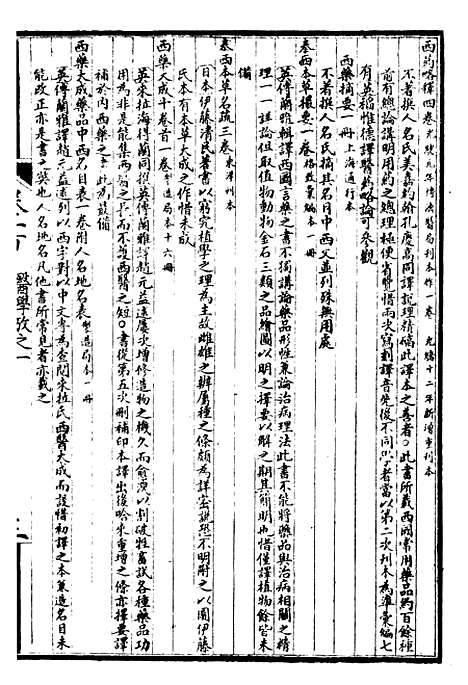 西藥略釋四卷 光緒元年博濟醫局刊本作一卷 光緒十二年新增重刊本
不著撰人名氏美嘉約翰孔慶高同譯說理精確此譯本之善者此書所載西國常用藥品約百餘種
前有總論講明用藥之總理極便省覽惜兩次寫刻譯音先後不同學者當以第二次刊本為準彙編七
有英稻惟德譯醫藥略論可參觀
西藥摘要一冊 上海通行本
不著撰人名氏摘其名目中西文並列殊無用處
泰西本草撮要一卷 格致彙編本一冊
英傅蘭雅輯譯西國言藥之書不獨講論藥品形性兼論治病理法此書不能將藥品與治病相關之精
理一一詳論但取植物動物金石三類之品繪圖以明之擇要以解之期其簡明也惜僅譯植物餘皆未
備
泰西本草名疏三卷 東洋刊本
日本伊藤清民著書以窮究植學之理為主故雌雄之辨屬種之條頗為詳密說恐不明附之以圖伊藤
氏本有本草大成之作惜未成
西藥大成十卷首一卷 製造局本十六冊
英來拉海得蘭同撰英傅蘭雅譯趙元益述屢次增修造物之機久而愈演以割破牲畜試各種藥品功
用為非是能集兩家之長而不護西醫之短○書從第五次刪補印本譯出後哈來重增之條亦擇要譯
補於內西藥之書此為最備
西藥大成藥品中西名目表一卷附人名地名表 製造局本一冊
英傅蘭雅譯趙元益述列以西字對以中文專為查閱來拉氏西醫大成而設惜初譯之本藥造名目未
能改正亦是書之寠地人名地名凡他書所常見者亦載之
卷一下 醫學攷之一